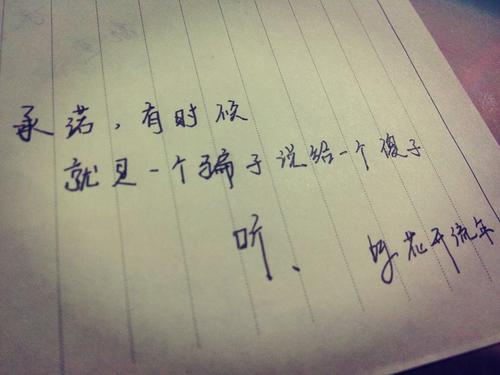 承诺，有时候
就是一个骗子说给一个傻子
听、
花开流年